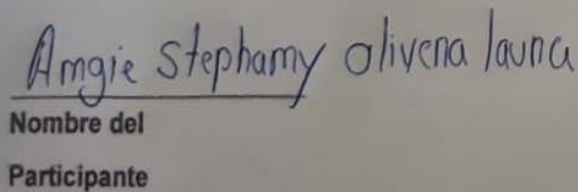 Amgie stephamy olivena launa
Nombre del
Participante